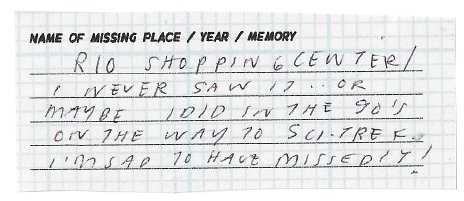 NAME OF MISSING PLACE / YEAR / MEMORY
RIO SHOPPING CENTER/
I NEVER SAW IT.. OR
MAYBE I DID IN THE 90'S
ON THE WAY TO SCI-TREK.
I'M SAD TO HAVE MISSED IT!